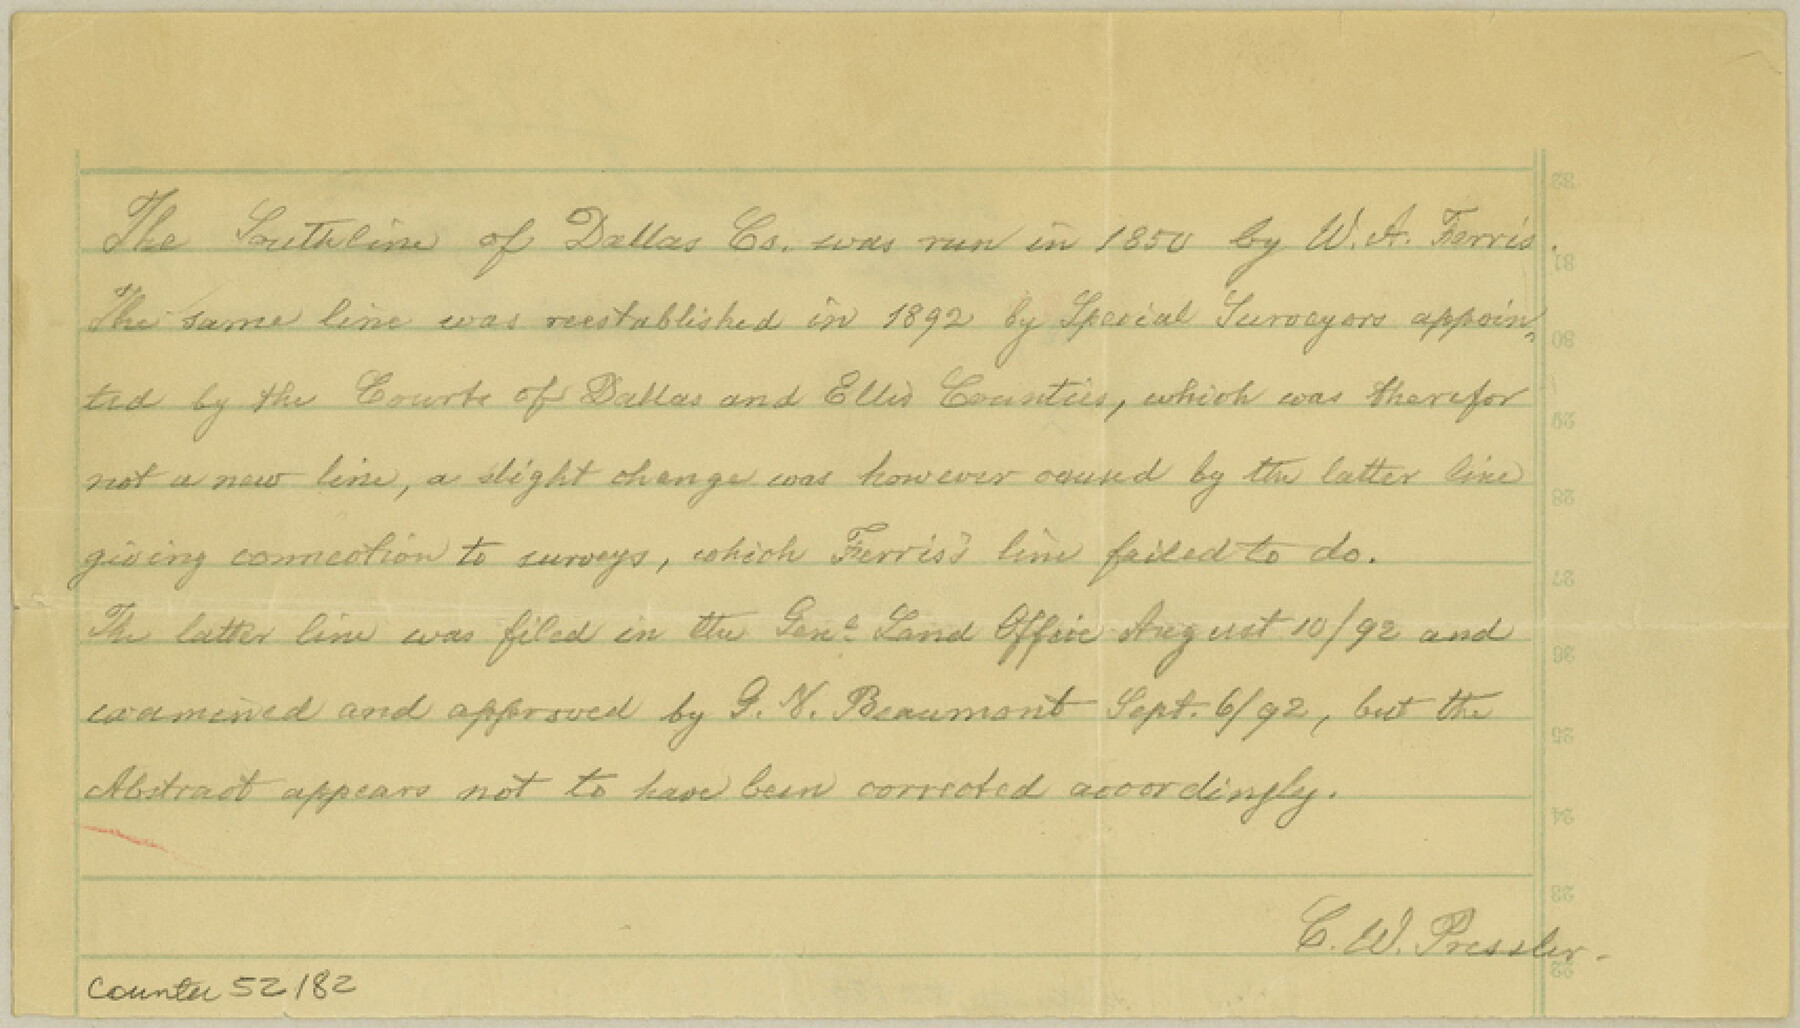 The Southline of Dallas Co. was run in 1850 by W. A. Ferris.
The same line was reestablished in 1892 by Special Surveyors appoin=
ted by the Courts of Dallas and Ellis Counties, which was therefor
not a new line, a slight change was however caused by the latter line
giving connection to surveys, which Ferris's line failed to do.
The latter line was filed in the Genl. Land Office August 10/92 and
examined and approved by G. N. Beaumont Sept. 6/92, but the
Abstract appears not to have been corrected accordingly.
C. W. Pressler.
counter 52182
32
31
30
29
28
27
26
25
24
23
22